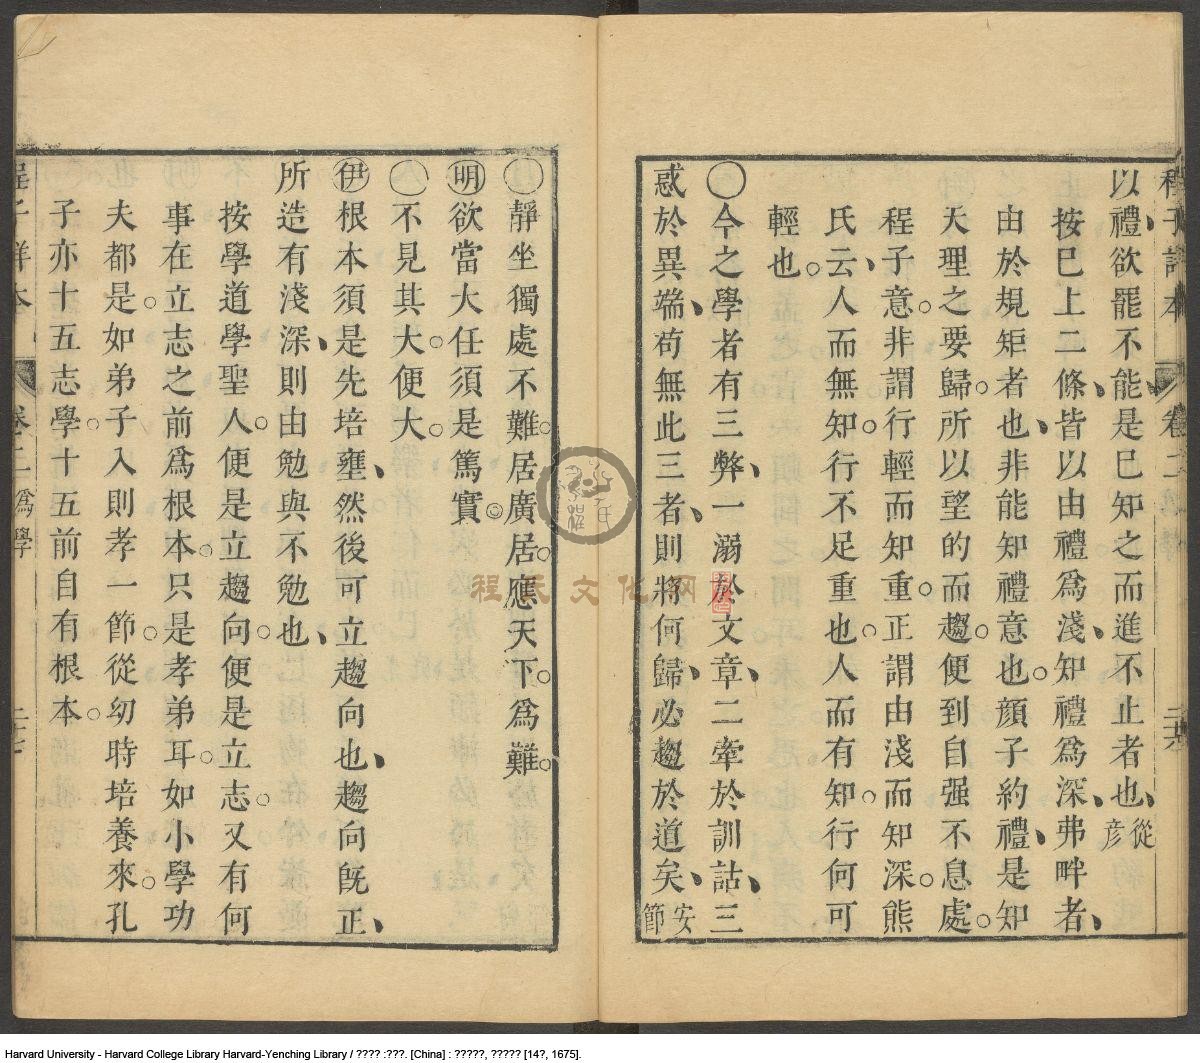 程子詳本
卷二
二十六
以禮欲罷不能是已知之而進不止者也從彦
按巳上二條皆以由禮爲淺知禮爲深弗畔者
由於規矩者也非能知禮意也顔子約禮是知
天理之要歸所以望的而趨便到自强不息處
程子意非謂行輕而知重正謂由淺而知深熊
氏云人而無知行不足重也人而有知行何可
輕也
〇今之學者有三弊一溺於文章二牽於訓詁三
惑於異端茍無此三者則將何歸必趨於道矣安節
〇靜坐獨處不難居廣居應天下爲難
明欲當大任須是篤實
〇不見其大便大
伊根本須是先培壅然後可立趨向也趨向旣正
所造有淺深則由勉與不勉也
按學道學聖人便是立趨向便是立志又有何
事在立志之前爲根本只是孝弟耳如小學功
夫都是如弟子入則孝一節從幼時培養來孔
子亦十五志學十五前自有根本
程子詳本
卷二
爲學
二十七
程氏文化网
Harvard University - Harvard College Library Harvard-Yenching Library / ???? :???. [China] : ?????, ????? [14?, 1675].